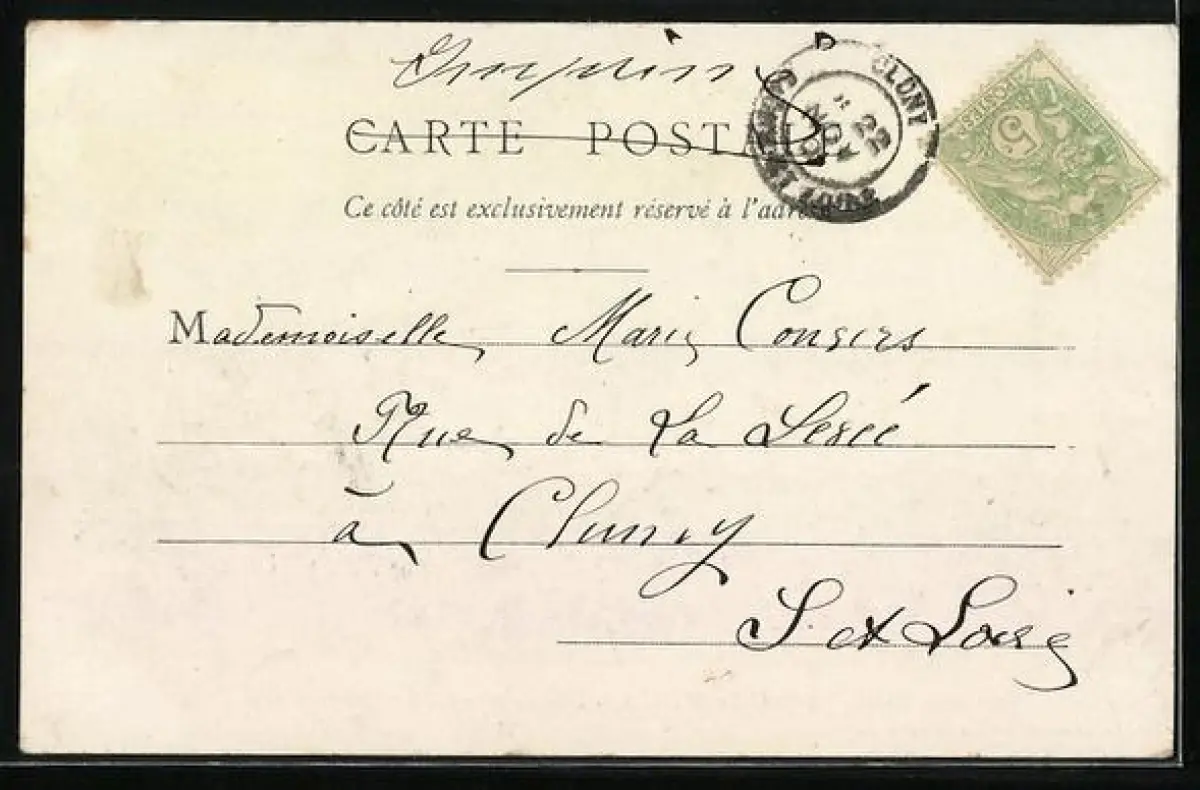 CARTE POSTALE
Ce côté est exclusivement réservé à l'adresse
CLUNY
22 NOV
ET LOIRE
POSTES
5
Mademoiselle Marie
Rue de La
à Cluny
S. et Loire